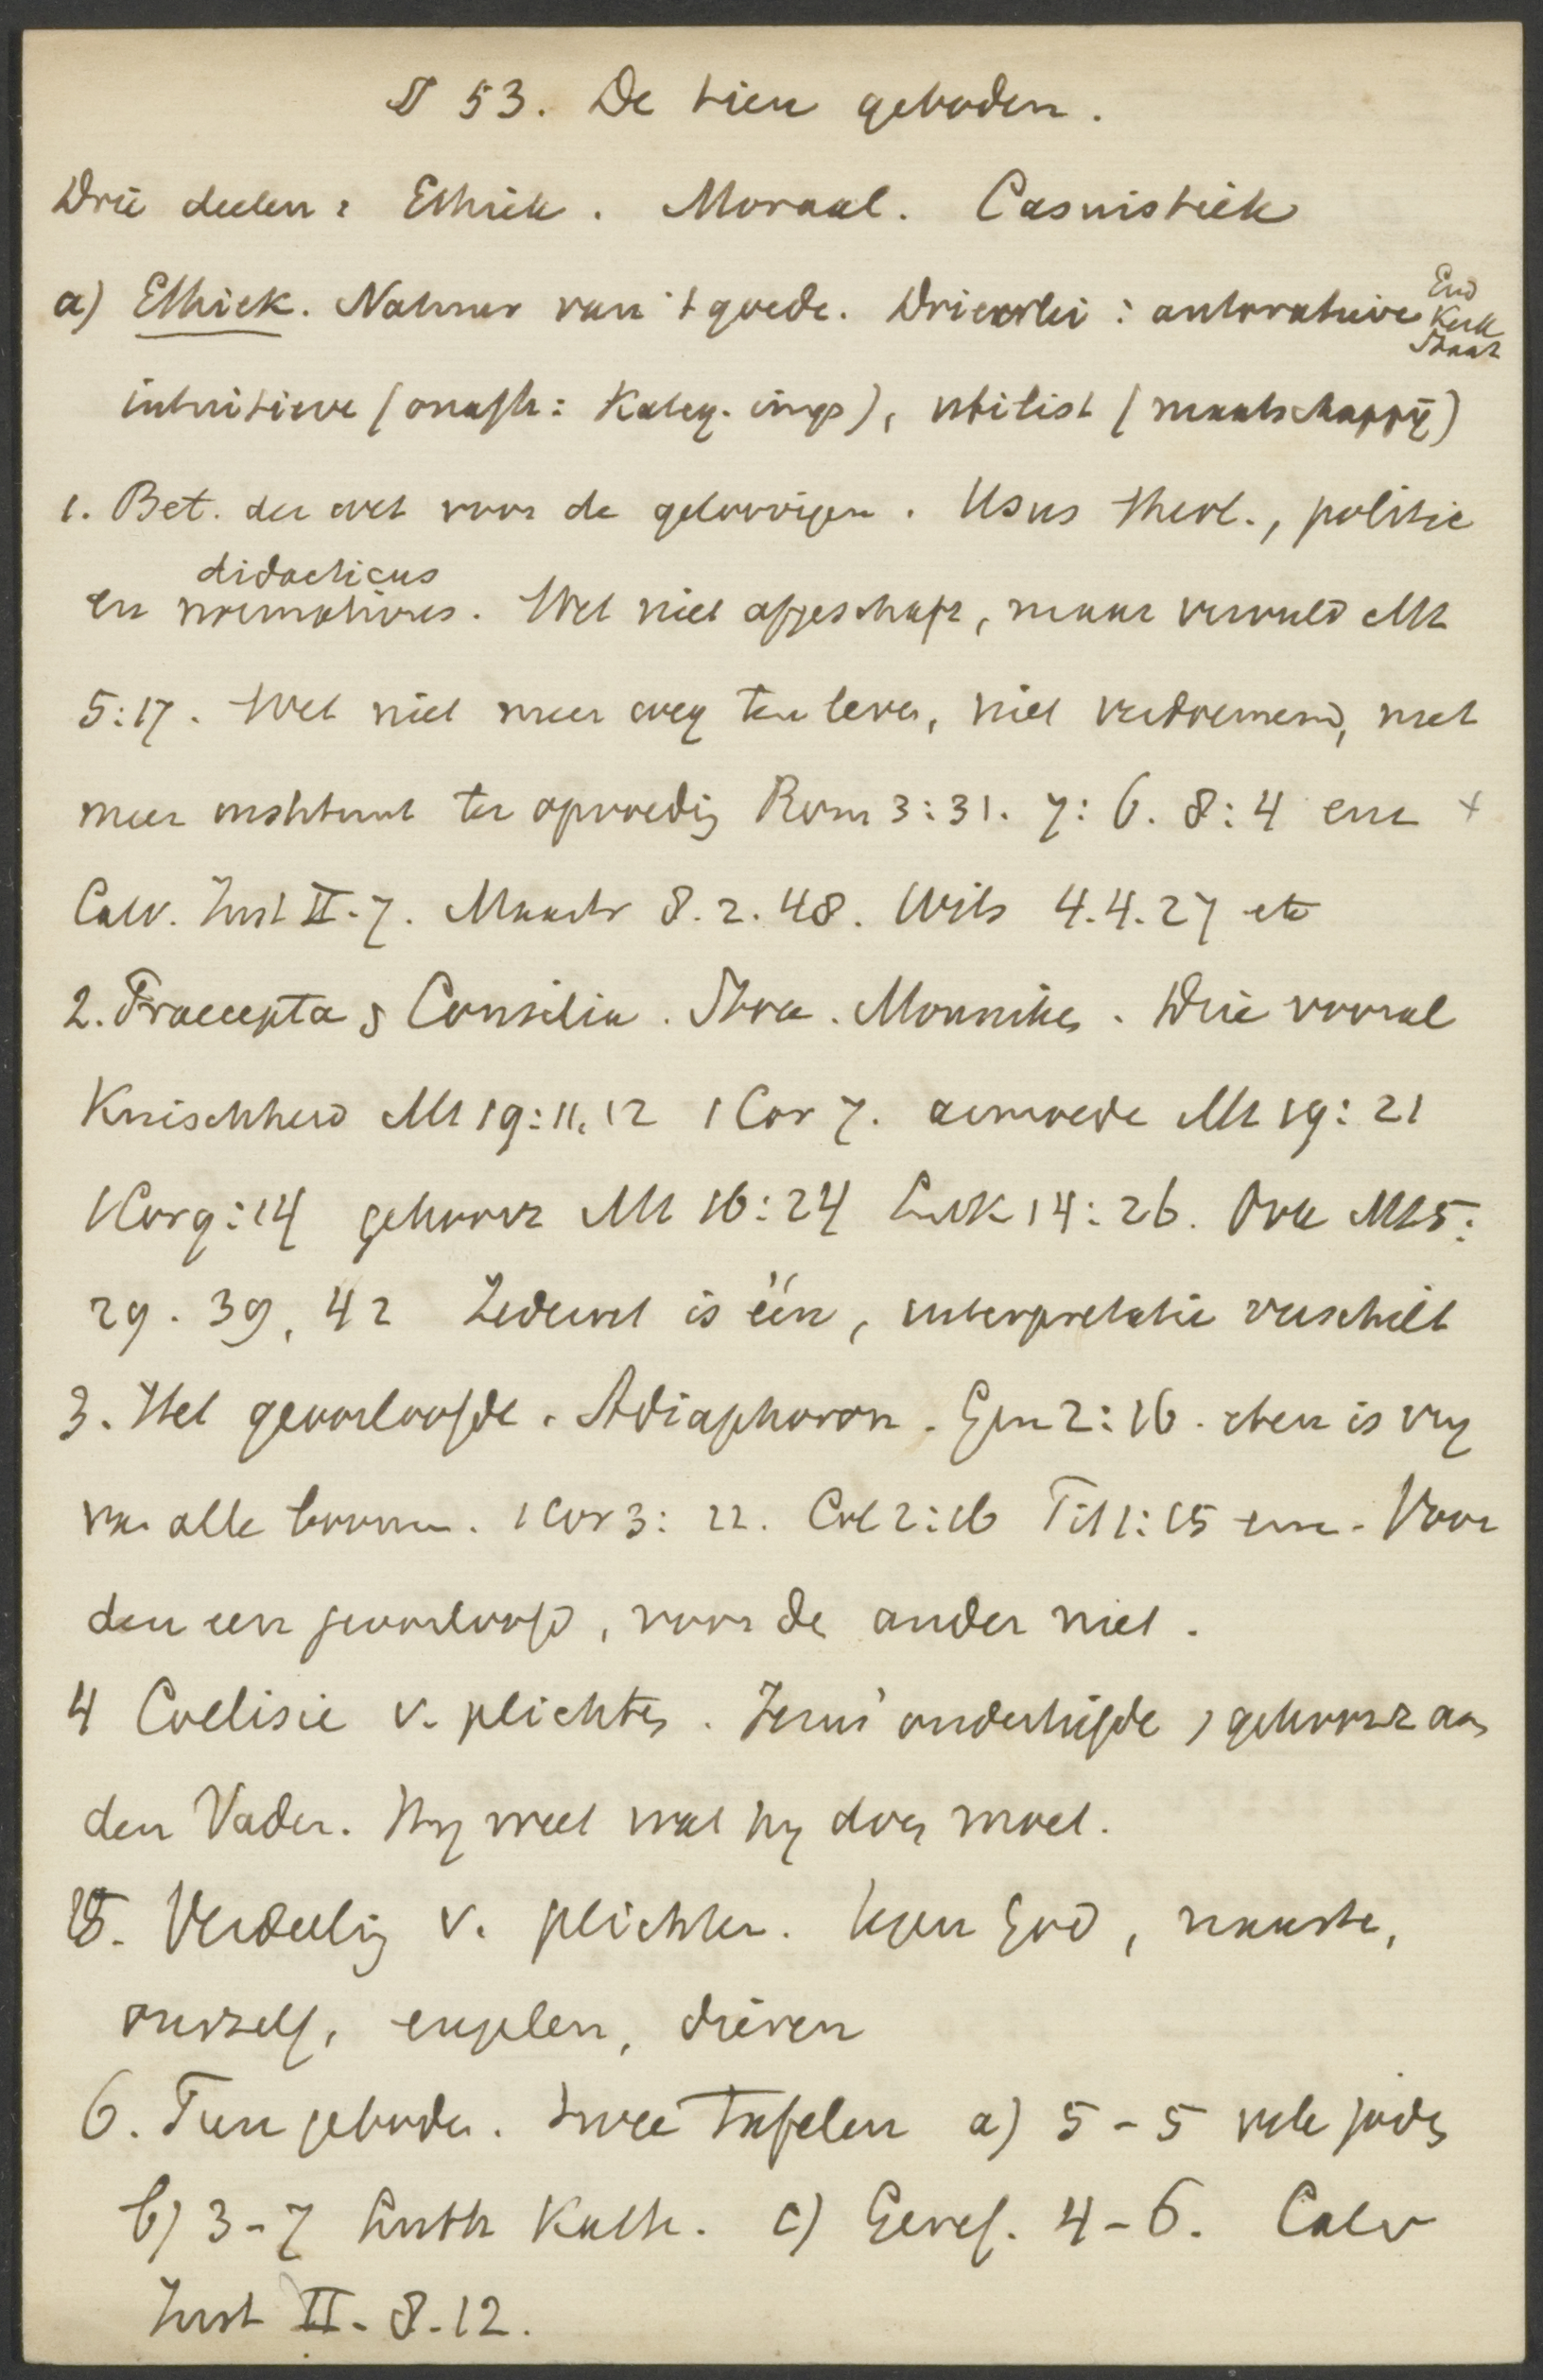 § 53. De tien geboden.
Drie deelen: Ethiek. Moraal. Casuistiek
a) Ethiek. Natuur van 't goede. Drieërlei: autoratieve God Kerk Staat
intuitieve (onafh: Kateg. imp), utilist (maatschappij)
1. Bet. der wet voor de geloovigen. Usus theol., politic
en normativus. didacticus Wet niet afgeschaft, maar vervuld Mt
5:17. Wet niet meer weg ten leven, niet verdoemend, niet
meer ter opvoeding Rom 3:31. 7:6. 8:4 enz +
Calv. Inst II-7. Maastr 8.2.48. Wits 4.4.27 etc
2. Praecepta & Consilia. Stoa. Monniken. Drie vooral
Kuischheid Mt 19:11,12 1 Cor 7. armoede Mt 19:21
1 Cor 9:14 gehoorz Mt 16:24 Luk 14:26. Ook Mt 5:
29. 39, 42 Zedewet is één, interpretatie verschilt
3. Het geoorloofde. Adiaphoron. Gen 2:16. eten is vrij
van alle boomen. 1 Cor 3:22. Col 2:16 Tit 1:15 enz. Voor
den een geoorloofd, voor de ander niet.
4 Collisie v. plichten. Jezus' onderhijde, gehoorz aan
den Vader. Hij weet wat hij doen moet.
5. Verdeeling v. plichten. tegen God, naaste,
onszelf, engelen, dieren
6. Tien geboden. twee Tafelen a) 5-5 vele joden
b) 3-7 Luth Kath. c) Geref. 4-6. Calv
Inst II-8-12.